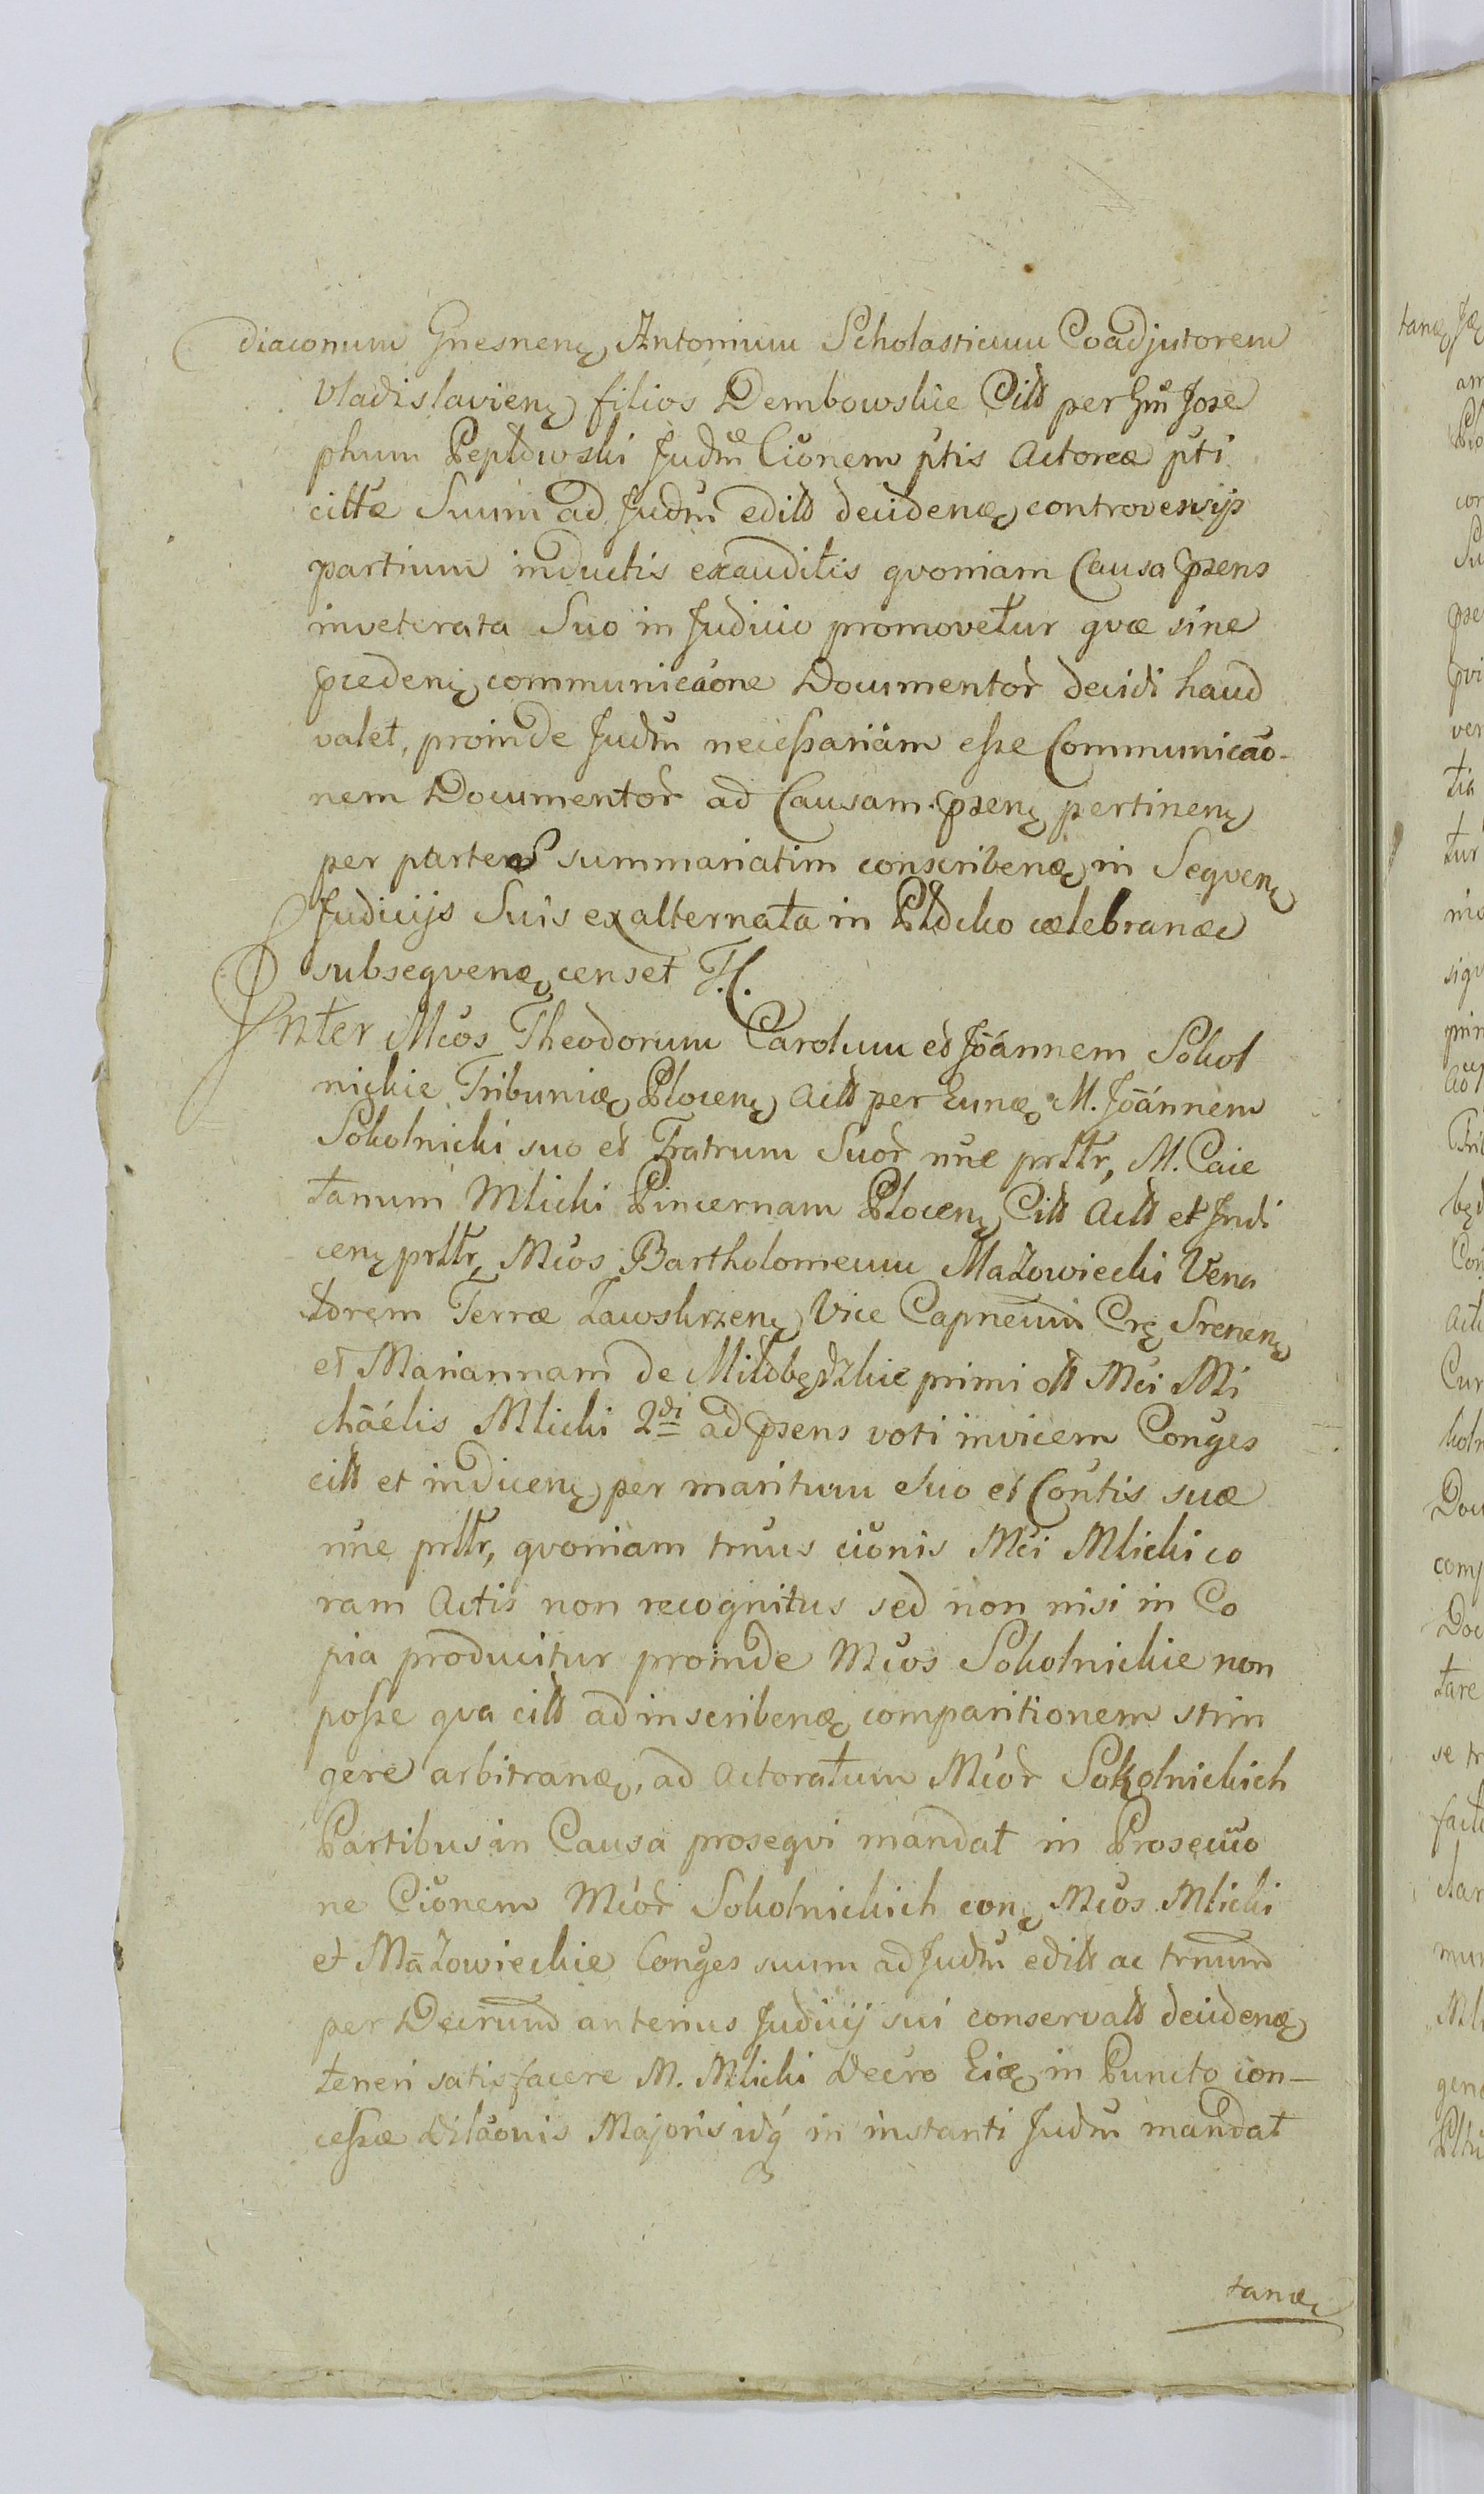 diaconum Gnesnenę Antonium Scholasticum Coadjutorem
Vladislavienę filios Dembowskie Citt per Gm̃ Jose
phum Pepłowski Judm̃ Cionem ptis Actoreæ pti
cittæ Suum ad Judm̃ editt decidenæ controversijs
partium inductis exauditis qvoniam Causa Pzens
inveterata Suo in Judicio promovetur qvæ sine
Pcedenę communicaone Documentor̃ decidi haud
valet, proinde Judm̃ necessariam esse Communicao-
nem Documentor̃ ad Causam Pzenę pertinenę
per partes summariatim conscribenæ in Seqvenę
Judicijs Suis ex alternata in Płocko cœlebranæ
subseqvenæ censet T.C.
Inter Mcos Theodorum Carolum et Joánnem Sokol
nickie Tribunię Plocenę Actt per Eunæ M. Joánnem
Sokolnicki suo et Fratrum Suor̃ nnē prłłr, M. Caie
tanum Mlicki Pincernam Plocenę Citt Actt et Indi
cenę prłłr, Mcos Bartholomeum Mazowiecki Vena
torem Terræ Zawskrzenę Vice Capneum Crę Srenenę
et Mariannam de Miłobędzkie primi ott Mci Mi
chaélis Mlicki 2di ad Pzens voti invicem Conges
citt et indicenę per maritum Suo et Contis suæ
nnē prłłr, qvoniam trnus cionis Mci Mlicki co
ram Actis non recognitus sed non nisi in Co
pia producitur proinde Mcos Sokolnickie non
posse qva citt ad inscribenæ comparitionem strin
gere arbitranæ, ad Actoratum Mcor̃ Sokolnickich
Partibus in Causa proseqvi mandat in Prosecuo
ne Cionem Mcor̃ Sokolnickich conę Mcos Mlicki
et Mazowieckie Conges suum ad Judm̃ editt ac trnum
per Decrum anterius Judicij sui conservatt decidenæ
teneri satisfacere M. Mlicki Decro Eię in Puncto con-
cessæ Dilaonis Majoris idq́ in instanti Judm̃ mandat
tanæ